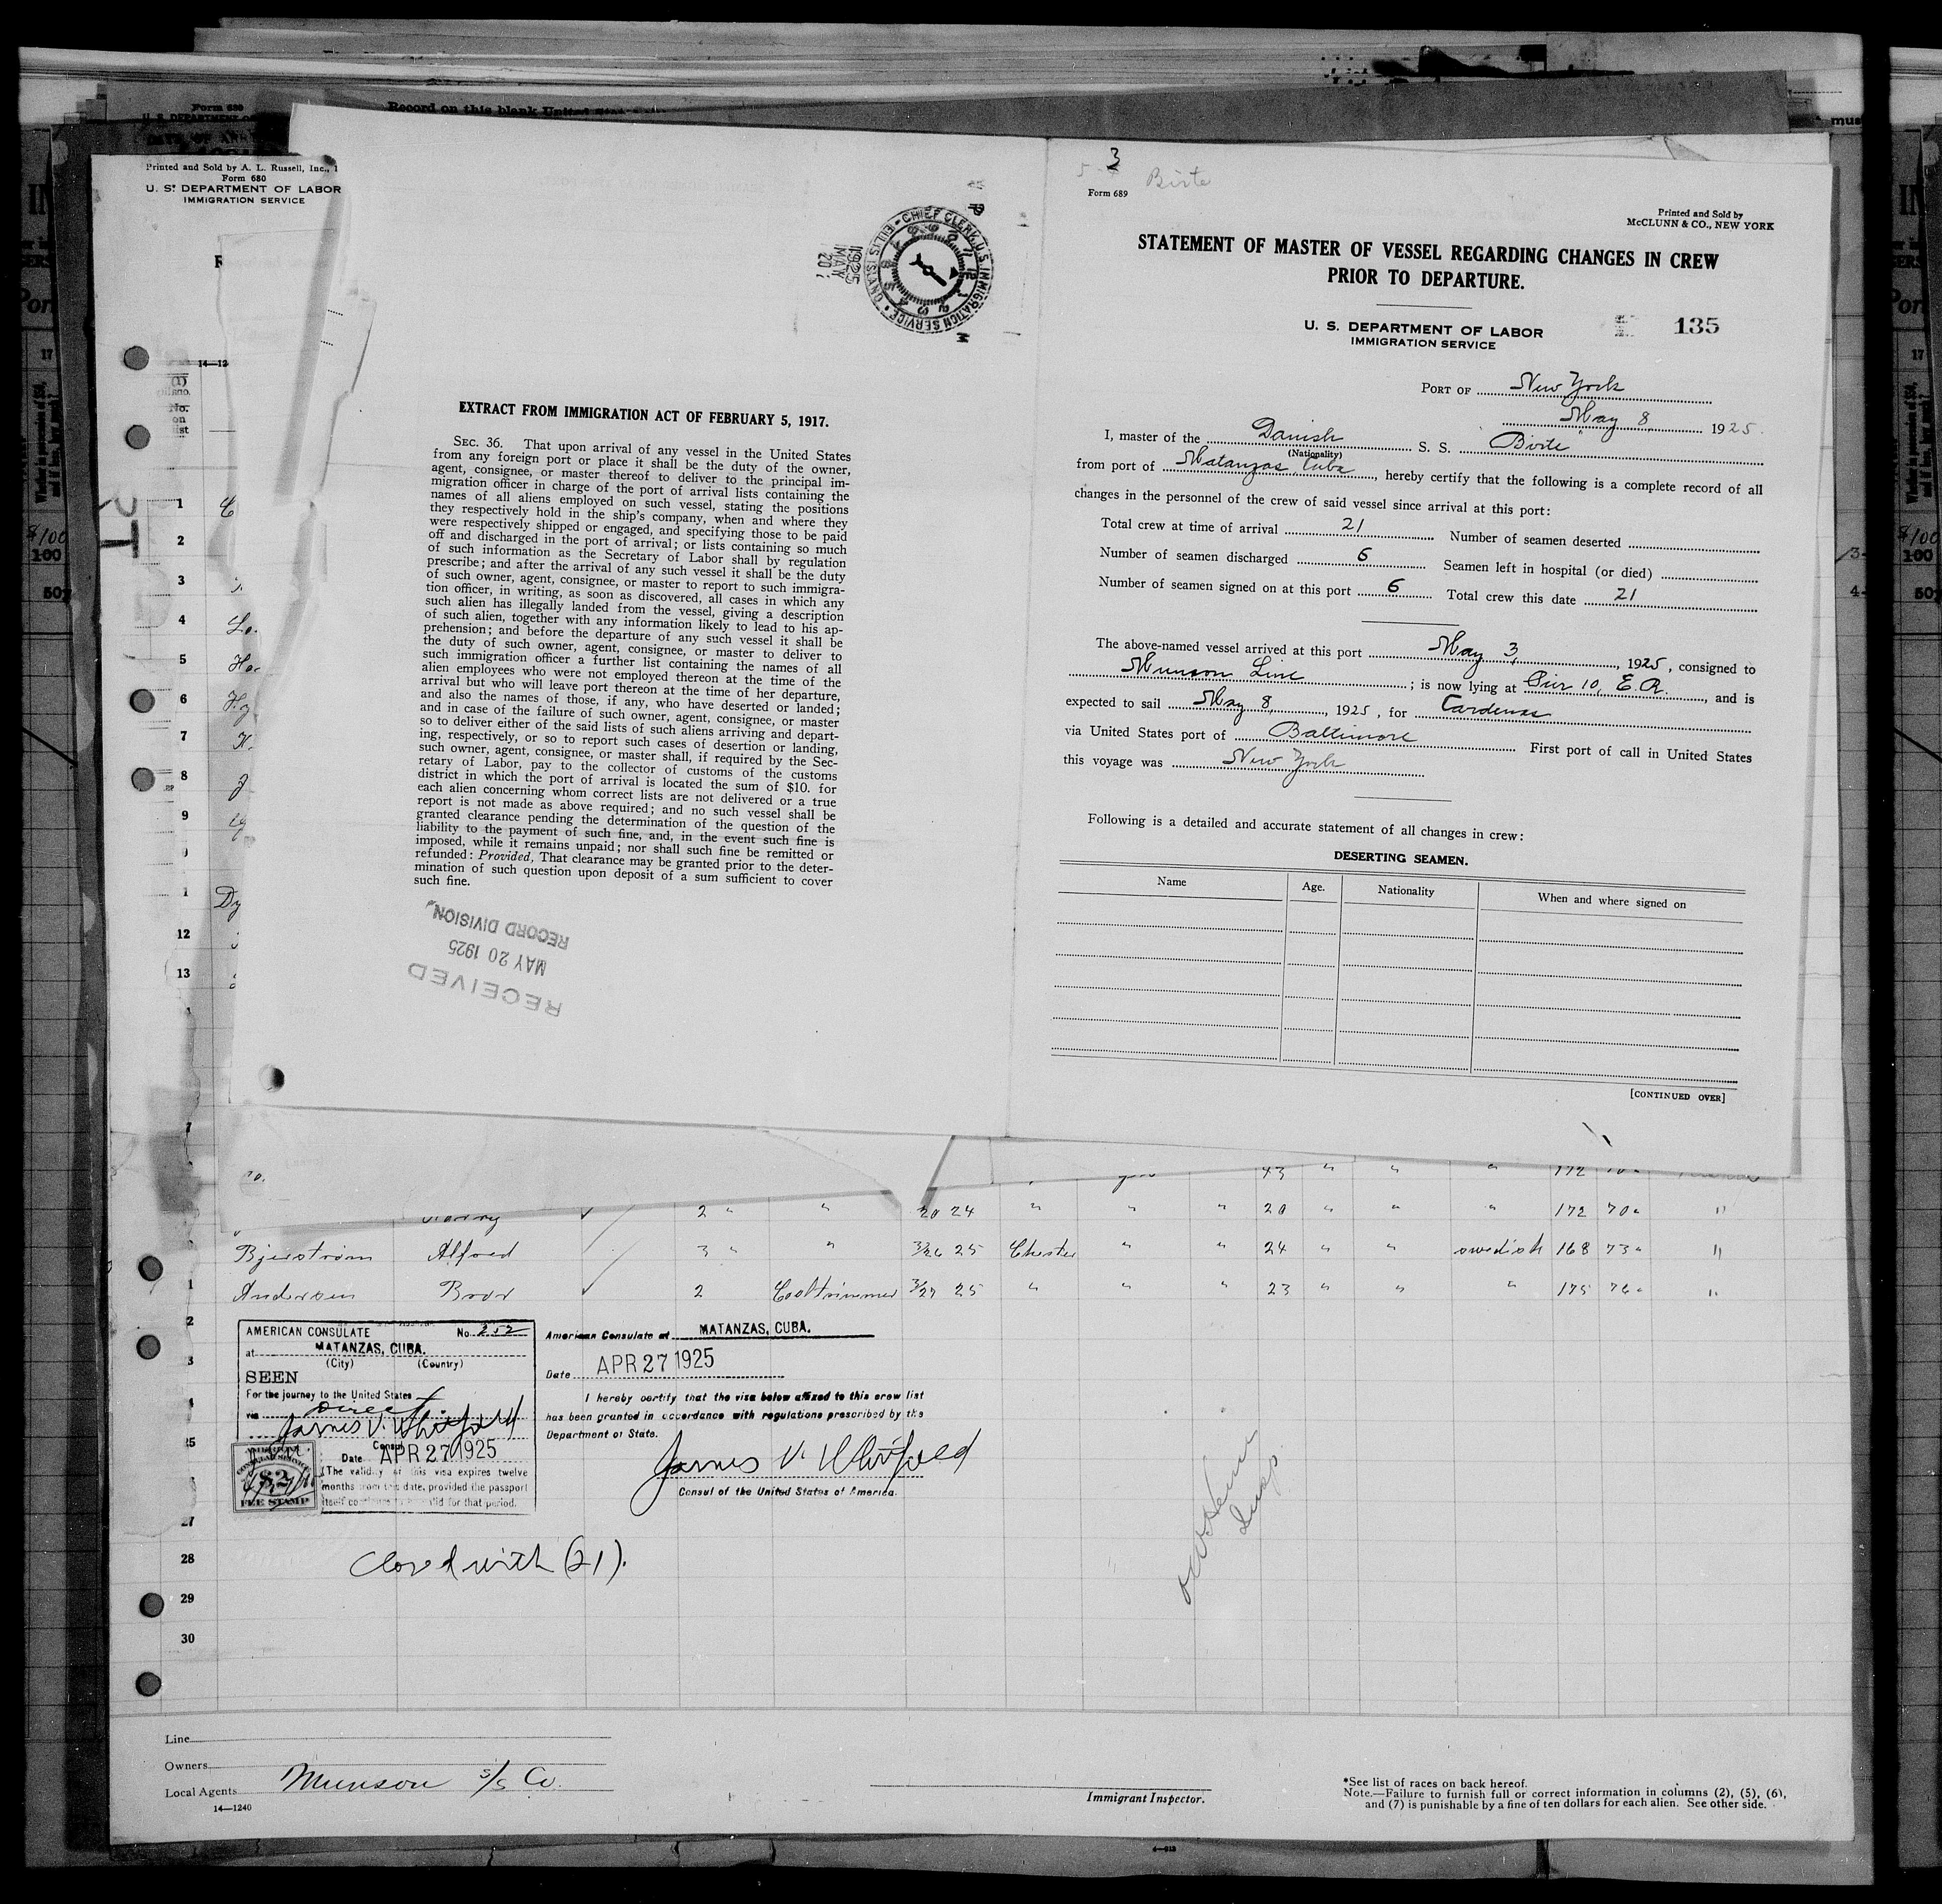 Form 680
U. S. DEPARTMENT O
Record on this blank
Printed and Sold by A. L. Russell, Inc., 1
Form 680
U. S. DEPARTMENT OF LABOR
IMMIGRATION SERVICE
14—12
No.
on
list
1
2
3
4
5
6
7
8
9
12
13
CHIEF CLERK, U.S. IMMIGRATION SERVICE • ELLIS ISLAND •
1925
MAY
20
EXTRACT FROM IMMIGRATION ACT OF FEBRUARY 5, 1917.
SEC. 36. That upon arrival of any vessel in the United States
from any foreign port or place it shall be the duty of the owner,
agent, consignee, or master thereof to deliver to the principal im-
migration officer in charge of the port of arrival lists containing the
names of all aliens employed on such vessel, stating the positions
they respectively hold in the ship's company, when and where they
were respectively shipped or engaged, and specifying those to be paid
off and discharged in the port of arrival; or lists containing so much
of such information as the Secretary of Labor shall by regulation
prescribe; and after the arrival of any such vessel it shall be the duty
of such owner, agent, consignee, or master to report to such immigra-
tion officer, in writing, as soon as discovered, all cases in which any
such alien has illegally landed from the vessel, giving a description
of such alien, together with any information likely to lead to his ap-
prehension; and before the departure of any such vessel it shall be
the duty of such owner, agent, consignee, or master to deliver to
such immigration officer a further list containing the names of all
alien employees who were not employed thereon at the time of the
arrival but who will leave port thereon at the time of her departure,
and also the names of those, if any, who have deserted or landed;
and in case of the failure of such owner, agent, consignee, or master
so to deliver either of the said lists of such aliens arriving and depart-
ing, respectively, or so to report such cases of desertion or landing,
such owner, agent, consignee, or master shall, if required by the Sec-
retary of Labor, pay to the collector of customs of the customs
district in which the port of arrival is located the sum of $10. for
each alien concerning whom correct lists are not delivered or a true
report is not made as above required; and no such vessel shall be
granted clearance pending the determination of the question of the
liability to the payment of such fine, and, in the event such fine is
imposed, while it remains unpaid; nor shall such fine be remitted or
refunded: Provided, That clearance may be granted prior to the deter-
mination of such question upon deposit of a sum sufficient to cover
such fine.
RECEIVED
MAY 20 1925
RECORD DIVISION
3
Birte
Form 689
Printed and Sold by
McCLUNN & CO., NEW YORK
STATEMENT OF MASTER OF VESSEL REGARDING CHANGES IN CREW
PRIOR TO DEPARTURE.
U. S. DEPARTMENT OF LABOR
IMMIGRATION SERVICE
135
PORT OF New York
May 8, 1925.
I, master of the Danish S. S. "Birte"
(Nationality)
from port of Matanzas Cuba, hereby certify that the following is a complete record of all
changes in the personnel of the crew of said vessel since arrival at this port:
Total crew at time of arrival 21 Number of seamen deserted
Number of seamen discharged 6 Seamen left in hospital (or died)
Number of seamen signed on at this port 6 Total crew this date 21
The above-named vessel arrived at this port May 3, 1925, consigned to
Munson Line; is now lying at Pier 10, E.R., and is
expected to sail May 8, 1925, for Cardenas
via United States port of Baltimore First port of call in United States
this voyage was New York
Following is a detailed and accurate statement of all changes in crew:
DESERTING SEAMEN.
Name Age. Nationality When and where signed on
[CONTINUED OVER]
43 " " " 172
Harry 2 " " 20 24 " " " 20 " " " 172 70" "
Bjerström Alfred 3 " " 3/26 25 Chester " " 24 " " swedish 168 73" "
Andersen Bror 2 Coaltrimmer 3/27 25 " " " 23 " " " 175 76" "
AMERICAN CONSULATE No. 252
at MATANZAS, CUBA.
(City) (Country)
SEEN
For the journey to the United States
via Direct
James V. Whitfield
Consul
Date APR 27 1925
(The validity of this visa expires twelve
months from this date, provided the passport
itself continues to be valid for that period.
$2
FEE STAMP
American Consulate at MATANZAS, CUBA.
Date APR 27 1925
I hereby certify that the visa below affixed to this crew list
has been granted in accordance with regulations prescribed by the
Department of State.
James V. Whitfield
Consul of the United States of America.
27
28
29
30
Closed with (21).
Insp.
Line
Owners
Local Agents Munson S/S Co.
14—1240
Immigrant Inspector.
*See list of races on back hereof.
Note.—Failure to furnish full or correct information in columns (2), (5), (6),
and (7) is punishable by a fine of ten dollars for each alien. See other side.